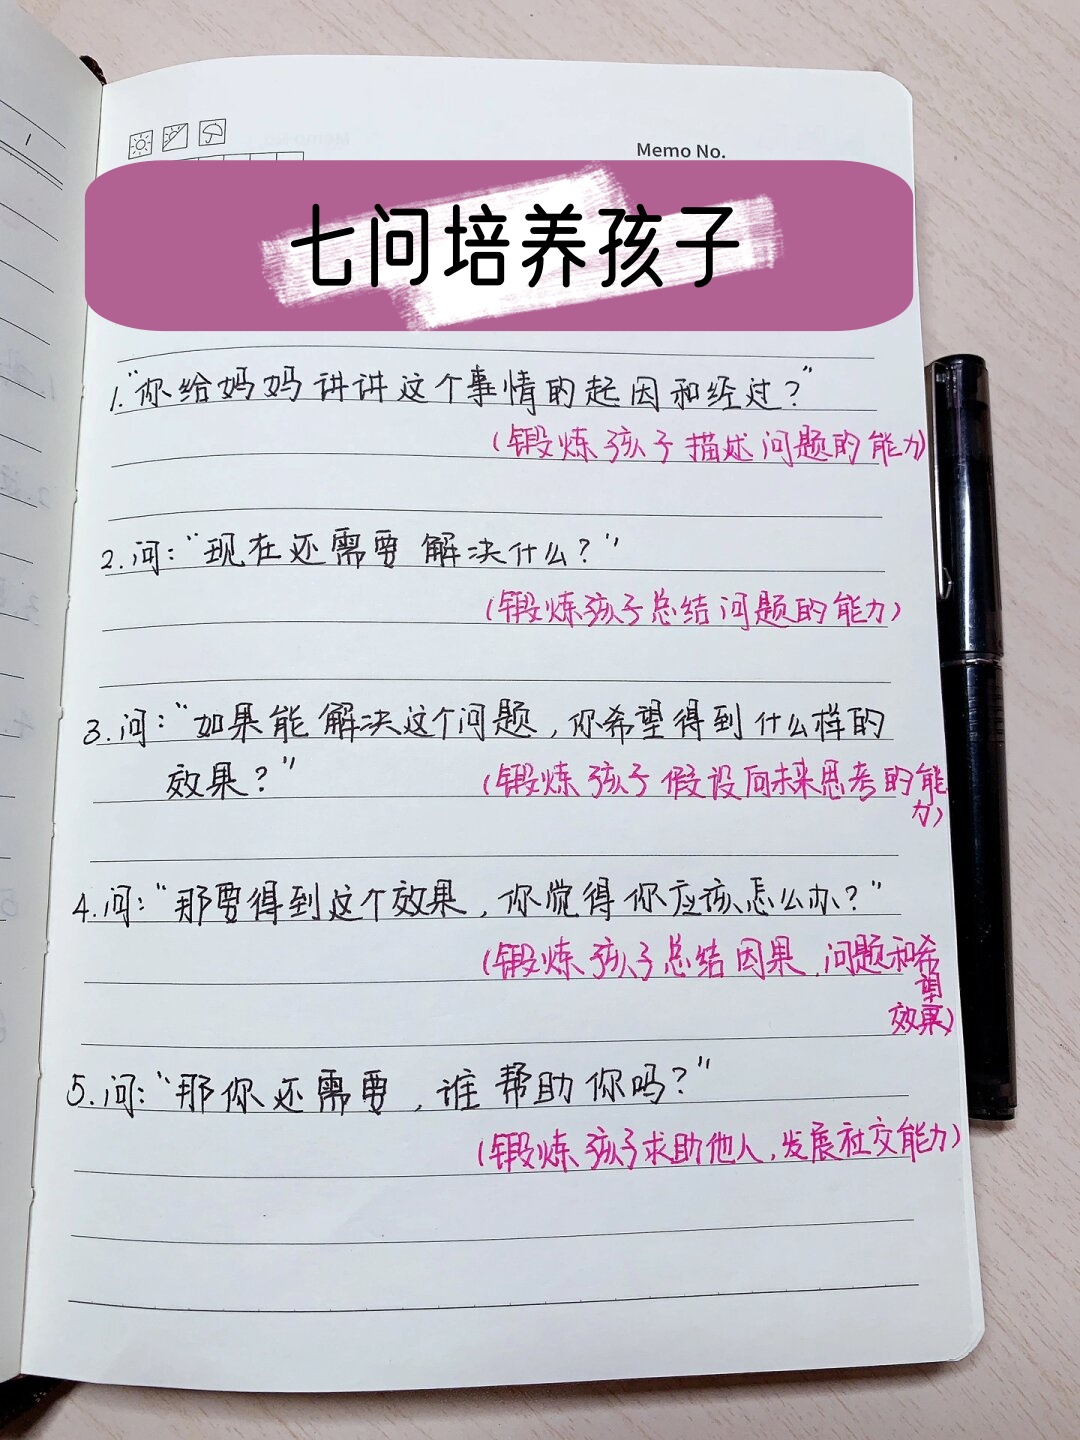 Memo No.
七问培养孩子
1."你给妈妈讲讲这个事情的起因和经过?"
(锻炼孩子描述问题的能力)
2.问:"现在还需要解决什么?"
(锻炼孩子总结问题的能力)
3.问:"如果能解决这个问题,你希望得到什么样的
效果?"
(锻炼孩子假设向未来思考的能
力)
4.问:"那要得到这个效果,你觉得你应该怎么办?"
(锻炼孩子总结因果,问题和希
望
效果)
5.问:"那你还需要,谁帮助你吗?"
(锻炼孩子求助他人,发展社交能力)